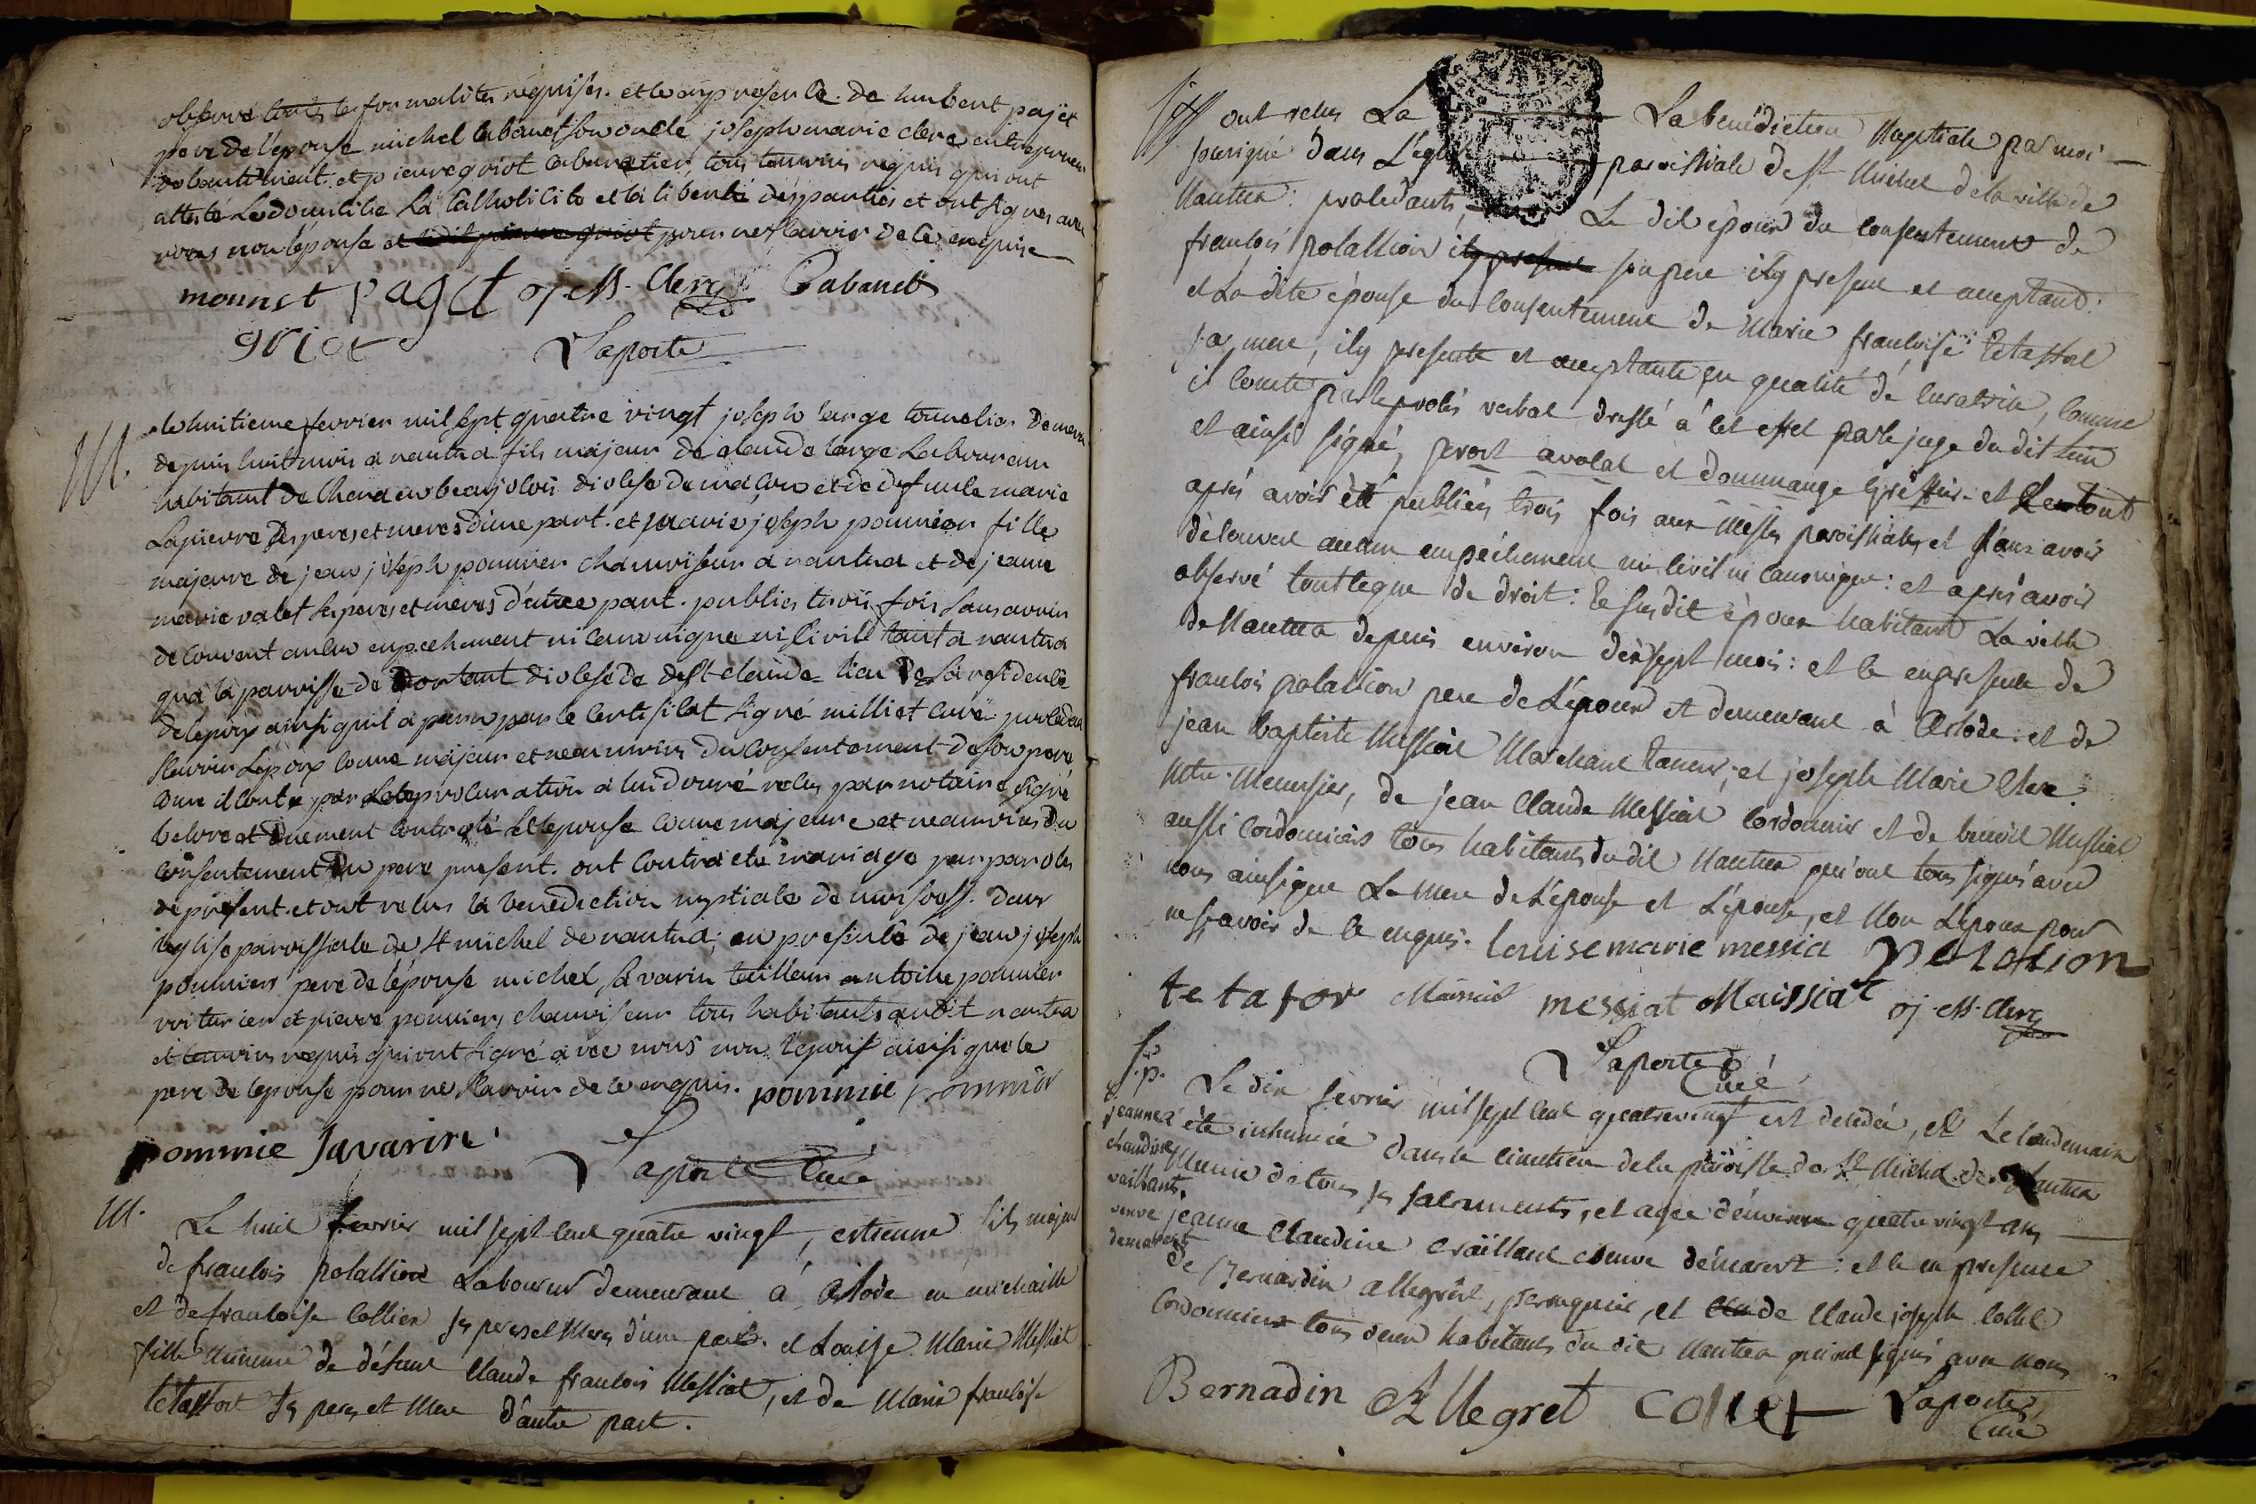 observé toutes les formalités requises. et ce en presence de humbert pajet
pere de l'epouse michel cabanet son oncle joseph marie clerc entrepreneur
de batiment. et pierre griot cabaretier, tous temoins requis qui ont
attesté le domicile la catholicité et la liberté des parties et ont signés avec
nous non l'epouse et ledit pierre griot pour ne sçavoir de ce enquise
mounet paget j. M. Clerc Cabanet
griot Laporte
M. le huitieme fevrier mil sept quatre vingt joseph large tonnelier demeurant
depuis huit mois a nantua fils majeur de claude large laboureur
habitant de Chena en beaujolois diocese de macon et de defunte marie
Lapierre ses peres et meres d'une part. et marie joseph pommier fille
majeure de jean joseph pommier chanvriseur a nantua et de jeanne
marie valet ses peres et meres d'autre part. publiés trois fois sans avoir
decouvert aucun empechement ni canonique ni civil tant a nantua
qu'a la parroisse de dortant diocese de St Claude lieu de sa residence
de l'epoux ainsi qu'il a paru par le certificat signé milliet curé procedant
l'epoux comme majeur et neanmoins du consentement de son pere
come il conste par la procuration a lui donné reçus par notaire signé
belore et duement controlé et l'epouse comme majeure et neanmoins du
consentement du pere present. ont contracté mariage par paroles
de present. et ont reçus la benediction nuptiale de moi soussi. dans
l'eglise paroissiale de St michel de nantua: en presence de jean joseph
pommier pere de l'épouse michel Savarin tailleur antoine pommier
voiturier et pierre pommier, chanvriseur tous habitants audit nantua
et temoins requis qui ont signé avec nous non l'epoux ainsi que le
pere de l'epouse pour ne sçavoir de ce enquis. pommie pommier
pommie Savarin
Laporte Curé
M. Le huit fevrier mil sept cent quatre vingt, estienne fils majeur
de francois polallion Laboureur demeurant à Ochode en michaille
et de francoise Collier ses peres et Meres d'une part. et Louise Marie Messiat
fille mineure de défunt Claude francois Messiat, et de Marie francoise
tétaffort ses peres et Mere d'autre part.
ont reçus La La benédiction Nuptiale par moi
sousigné dans L'église paroissiale de St Michel de la ville de
Nantua: procedants, Le dit époux du consentement de
francois polallion icy present son pere icy present et acceptant:
et La dite épouse du Consentement de Marie francoise tétaffort
sa mere, icy presente et acceptante, en qualité de curatrice, Comme
il Conste par le procés verbal dressé à cet effet par le juge du dit lieu
et ainsi signé, prost avocat et dommange Greffier. et Le tout
aprés avoir été publiés trois fois aux Messes paroissiales, et sans avoir
découvert aucun empéchement ni civil ni canonique: et aprés avoir
observé tout ce que de droit: Le susdit époux habitant La ville
de Nantua depuis environ dix sept mois: et ce en presence de
francois polallion pere de L'époux et demeurant à Ochode: et de
jean Baptiste Messiat Marchant taneur, et joseph Marie Clerc
Mtre Menuisier, de jean Claude Messiat Cordonnier et de benoit Messiat
aussi cordonniers tous habitants du dit Nantua qui ont tous signés avec
nous ainsi que La Mere de L'épouse et L'épouse, et Non L'époux pour
ne sçavoir de ce enquis. louise marie messia polalion
te ta for Maissiat messiat Maissiat j. M. Clerc
Laporte
Curé
S.p.
jeanne
claudine
vaillant,
veuve
demarest
Le dix fevrier mil sept cent quatrevingt est decedée, et Le lendemain
a été inhumée dans le cimetiere de la paroisse de St Michel de Nantua
Munie de tous ses sacrements, et agée d'environ quatre vingt ans
jeanne Claudine vaillant veuve démarest: et ce en presence
de Bernardin allegret, perruquier, et de Claude joseph Collet
Cordonnier tous deux habitants du dit Nantua qui ont signés avec nous
Bernadin Allegret Collet Laporte
Curé